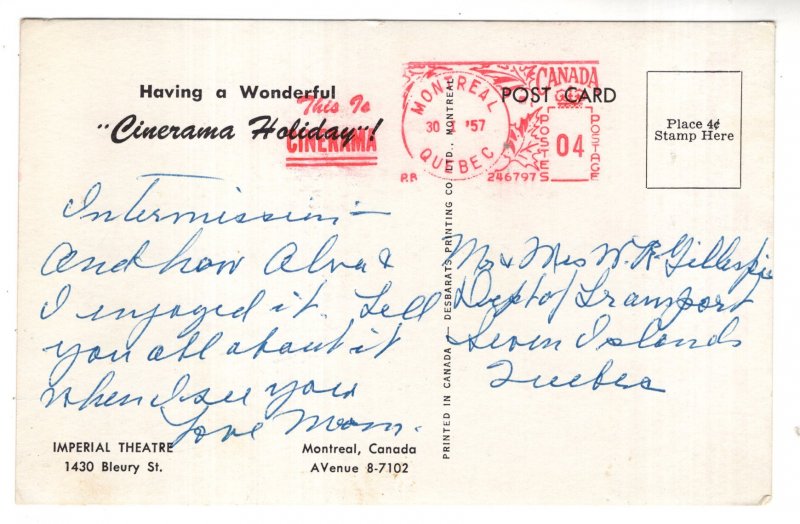 Having a Wonderful
"Cinerama Holiday"!
This Is
CINERAMA
MONTREAL
30 '57
QUEBEC
CANADA
POSTES
04
POSTAGE
P.B. 246797
POST CARD
Place 4¢
Stamp Here
Intermission—
And how Alva &
I enjoyed it. Tell
you all about it
when I see you
Love Mom.
Mr & Mrs W. R. Gillespie
Dept of Transport
Seven Islands
Quebec
IMPERIAL THEATRE
1430 Bleury St.
Montreal, Canada
AVenue 8-7102
PRINTED IN CANADA — DESBARATS PRINTING CO. LTD., MONTREAL